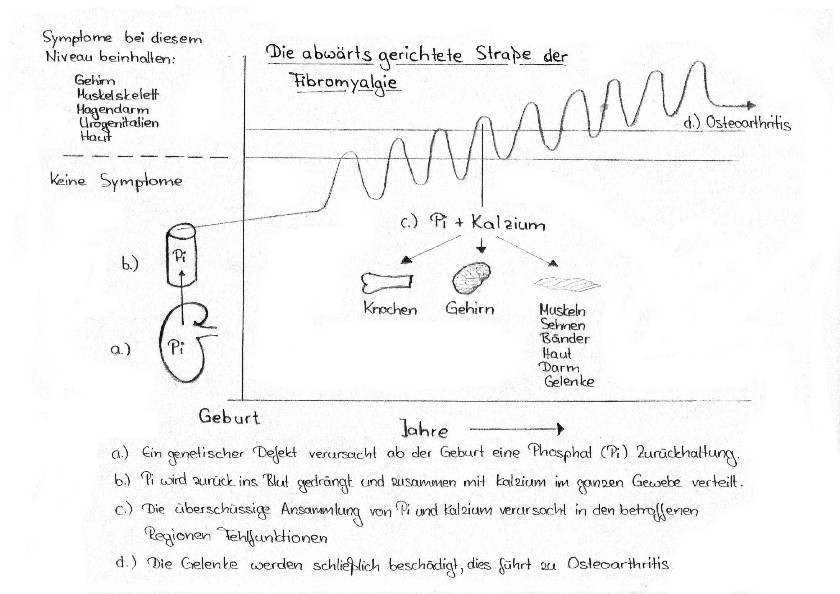 Symptome bei diesem
Niveau beinhalten:
Gehirn
Muskelskelett
Magendarm
Urogenitalien
Haut
Keine Symptome
Die abwärts gerichtete Straße der
Fibromyalgie
d.) Osteoarthritis
c.) Pi + Kalzium
b.)
Pi
Knochen
Gehirn
Muskeln
Sehnen
Bänder
Haut
Darm
Gelenke
a.)
Pi
Geburt
Jahre
a.) Ein genetischer Defekt verursacht ab der Geburt eine Phosphat (Pi) Zurückhaltung.
b.) Pi wird zurück ins Blut gedrängt und zusammen mit Kalzium im ganzen Gewebe verteilt.
c.) Die überschüssige Ansammlung von Pi und Kalzium verursacht in den betroffenen
Regionen Fehlfunktionen
d.) Die Gelenke werden schließlich beschädigt, dies führt zu Osteoarthritis